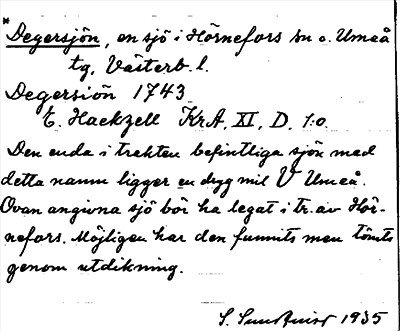 *
Degersjön, en sjö i Hörnefors sn o. Umeå
tg, Västerb. l.
Degersiön 1743
E. Hackzell KrA, XI, D, 1:o
Den enda i trakten befintliga sjön med
detta namn ligger en dryg mil V Umeå.
Ovan angivna sjö bör ha legat i tr. av Hör-
nefors. Möjligen har den funnits men tömts
genom utdikning.
S. Sundqvist 1935